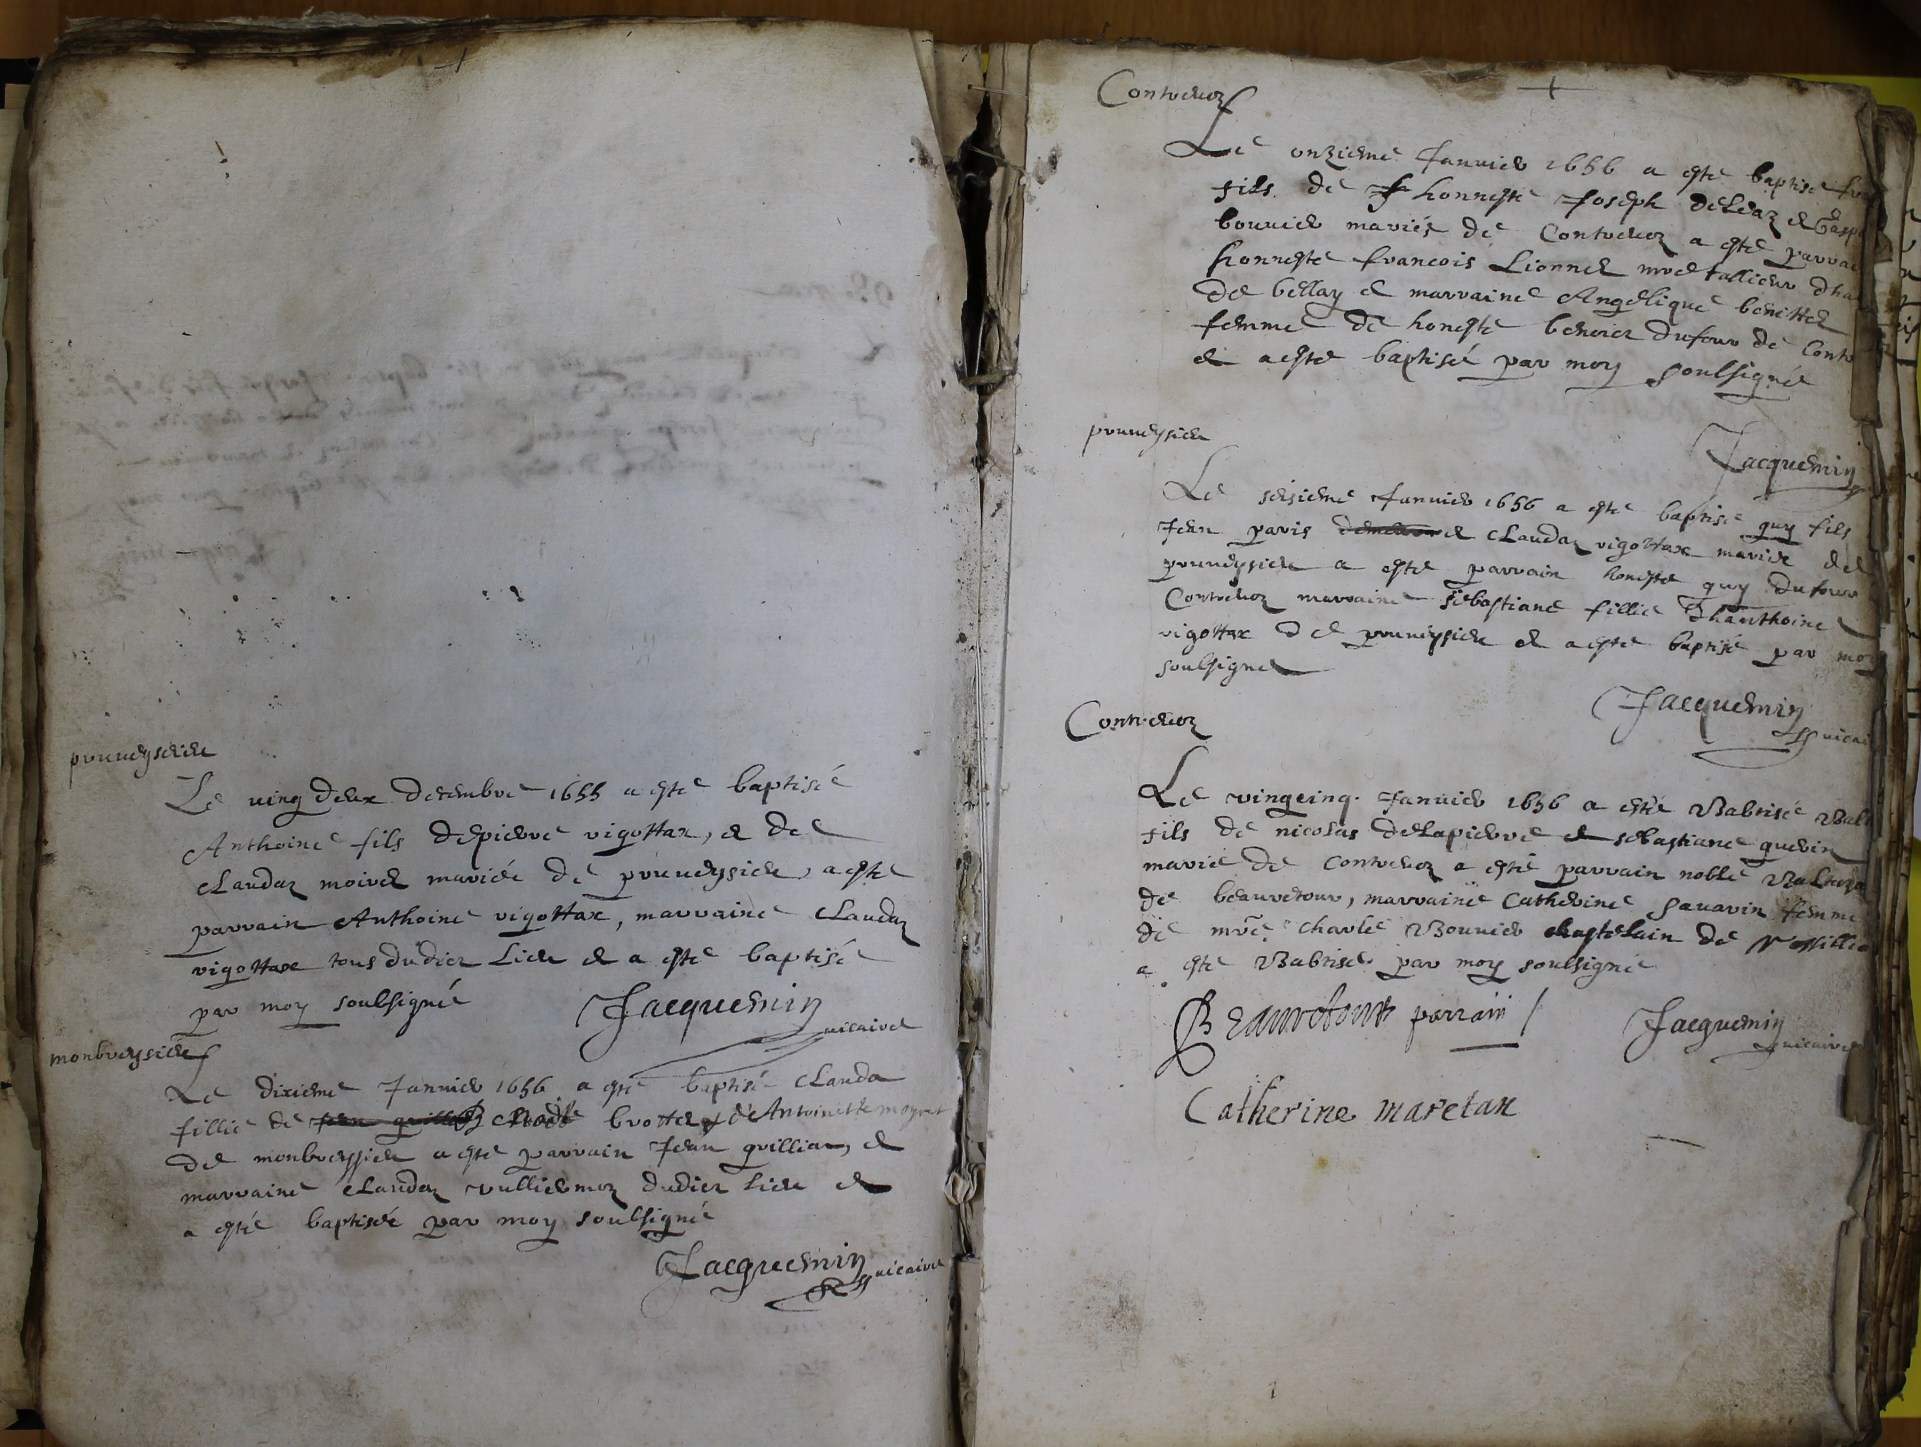 pruneyserieu
Le uing deux decembre 1655 a este baptisé
Anthoine fils depierre vigottax, et de
claudaz moiret mariés de pruneysieu, a este
parrain Anthoine vigottax, marraine claudaz
vigottax tous dudict Lieu et a este baptisé
par moy soulsigné
Jacquemin
uicaire
monbreysieu
Le dixieme Januier 1656 a esté baptisé clauda
fillie de brottet et de Antoinette moyret
de monbreyssieu a esté parrain Jean quilliaz, et
marraine claudaz vulliermoz dudict Lieu et
a esté baptisée par moy soulsigné
Jacquemin uicaire
Contreuoz
Le onzieme Januier 1656 a este baptise
fils de honneste Joseph deleaz et
bouuier mariés de Contreuoz a este
honneste francois Lionnet mre tallieur
de bellay et marraine Angelique benettet
femme de honeste benoict dufour de
et aeste baptisé par moy soulsigné
Jacquemin
pruneysieu
Le seisieme Januier 1656 a este baptise guy fils
Jean paris et claudaz vigottax mariés de
pruneysieu a este parrain honeste guy dufour
Contreuoz marraine sebastiane fillie dhanthoine
vigottax de pruneysieu et aeste baptisé par moy
soulsigné
Jacquemin
uicai
Contreuoz
Le vingcinq Januier 1656 a esté Babtisé
fils de nicolas delapierre et sebastiane guerin
marié de Contreuoz a esté parrain noble
de beauretour, marraine Catherine sauarin femme
de mre charle Bouuier chastelain de
a este Babtisé par moy soulsigné
Beauretour parrain
Jacquemin
uicaire
Catherine maretan